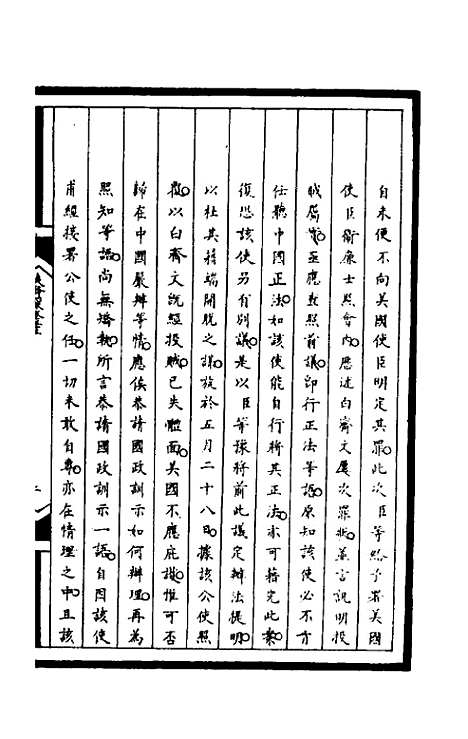 自未便不向美國使臣明定其罪此次臣等給予署美國
使臣衛廉士照會內歷述白齊文屢次罪狀並言說明投
賊屬實亟應查照前議即行正法等語原知該使必不肯
任聽中國正法如該使能自行將其正法亦可藉完此案
復恐該使另有別議是以臣等豫將前此議定辦法提明
以杜其藉端開脫之謀旋於五月二十八日據該公使照
復以白齊文既經投賊已失體面美國不應庇護惟可否
歸在中國嚴辦等情應俟恭請國政訓示如何辦理再為
照知等語尚無矯執所言恭請國政訓示一語自因該使
甫經接署公使之任一切未敢自專亦在情理之中且該